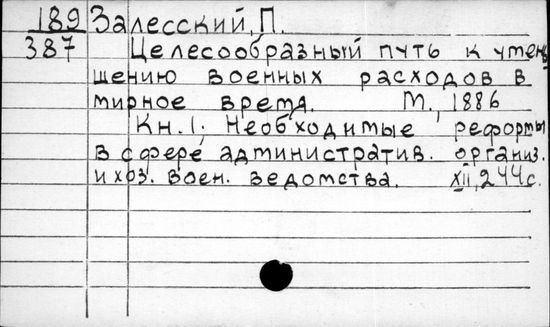 189 Залесский, П.
387 Целесообразный путь к умень
шению военных расходов в
мирное время. М., 1886
Кн. 1. Необходимые реформы
в сфере административ. организ.
и хоз. воен. ведомства. XII, 244 с.